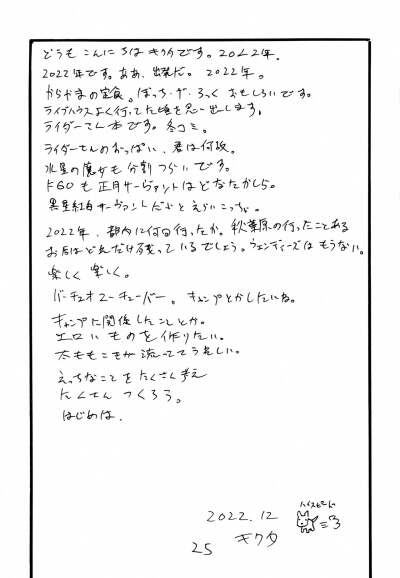 どうもこんにちはキクタです。2022年。
2022年です。ああ、出来だ。2022年。
からやまの定食。ぼっち・ざ・ろっくおもしろいです。
ライブハウスよく行ってた頃を思い出します。
ライダーさん本です。冬コミ。
ライダーさんのおっぱい、君は何故。
水星の魔女も分割つらいです。
FGOも正月サーヴァントはどなたかしら。
黒星紅白サーヴァントだと えらいこっちゃ。
2022年、都内に何回行ったか。秋葉原の行ったことある
お店はどれだけ残っているでしょう。ウェンディーズはもうない。
楽しく楽しく。
バーチュオユーチューバー。キャンプとかしたいね。
キャンプに関係したことか。
エロいものを作りたい。
太ももこもが流っててうれしい。
えっちなことをたくさん考え
たくさんつくろう。
はじめは、
2022.12
キクタ
ハイスピード
25